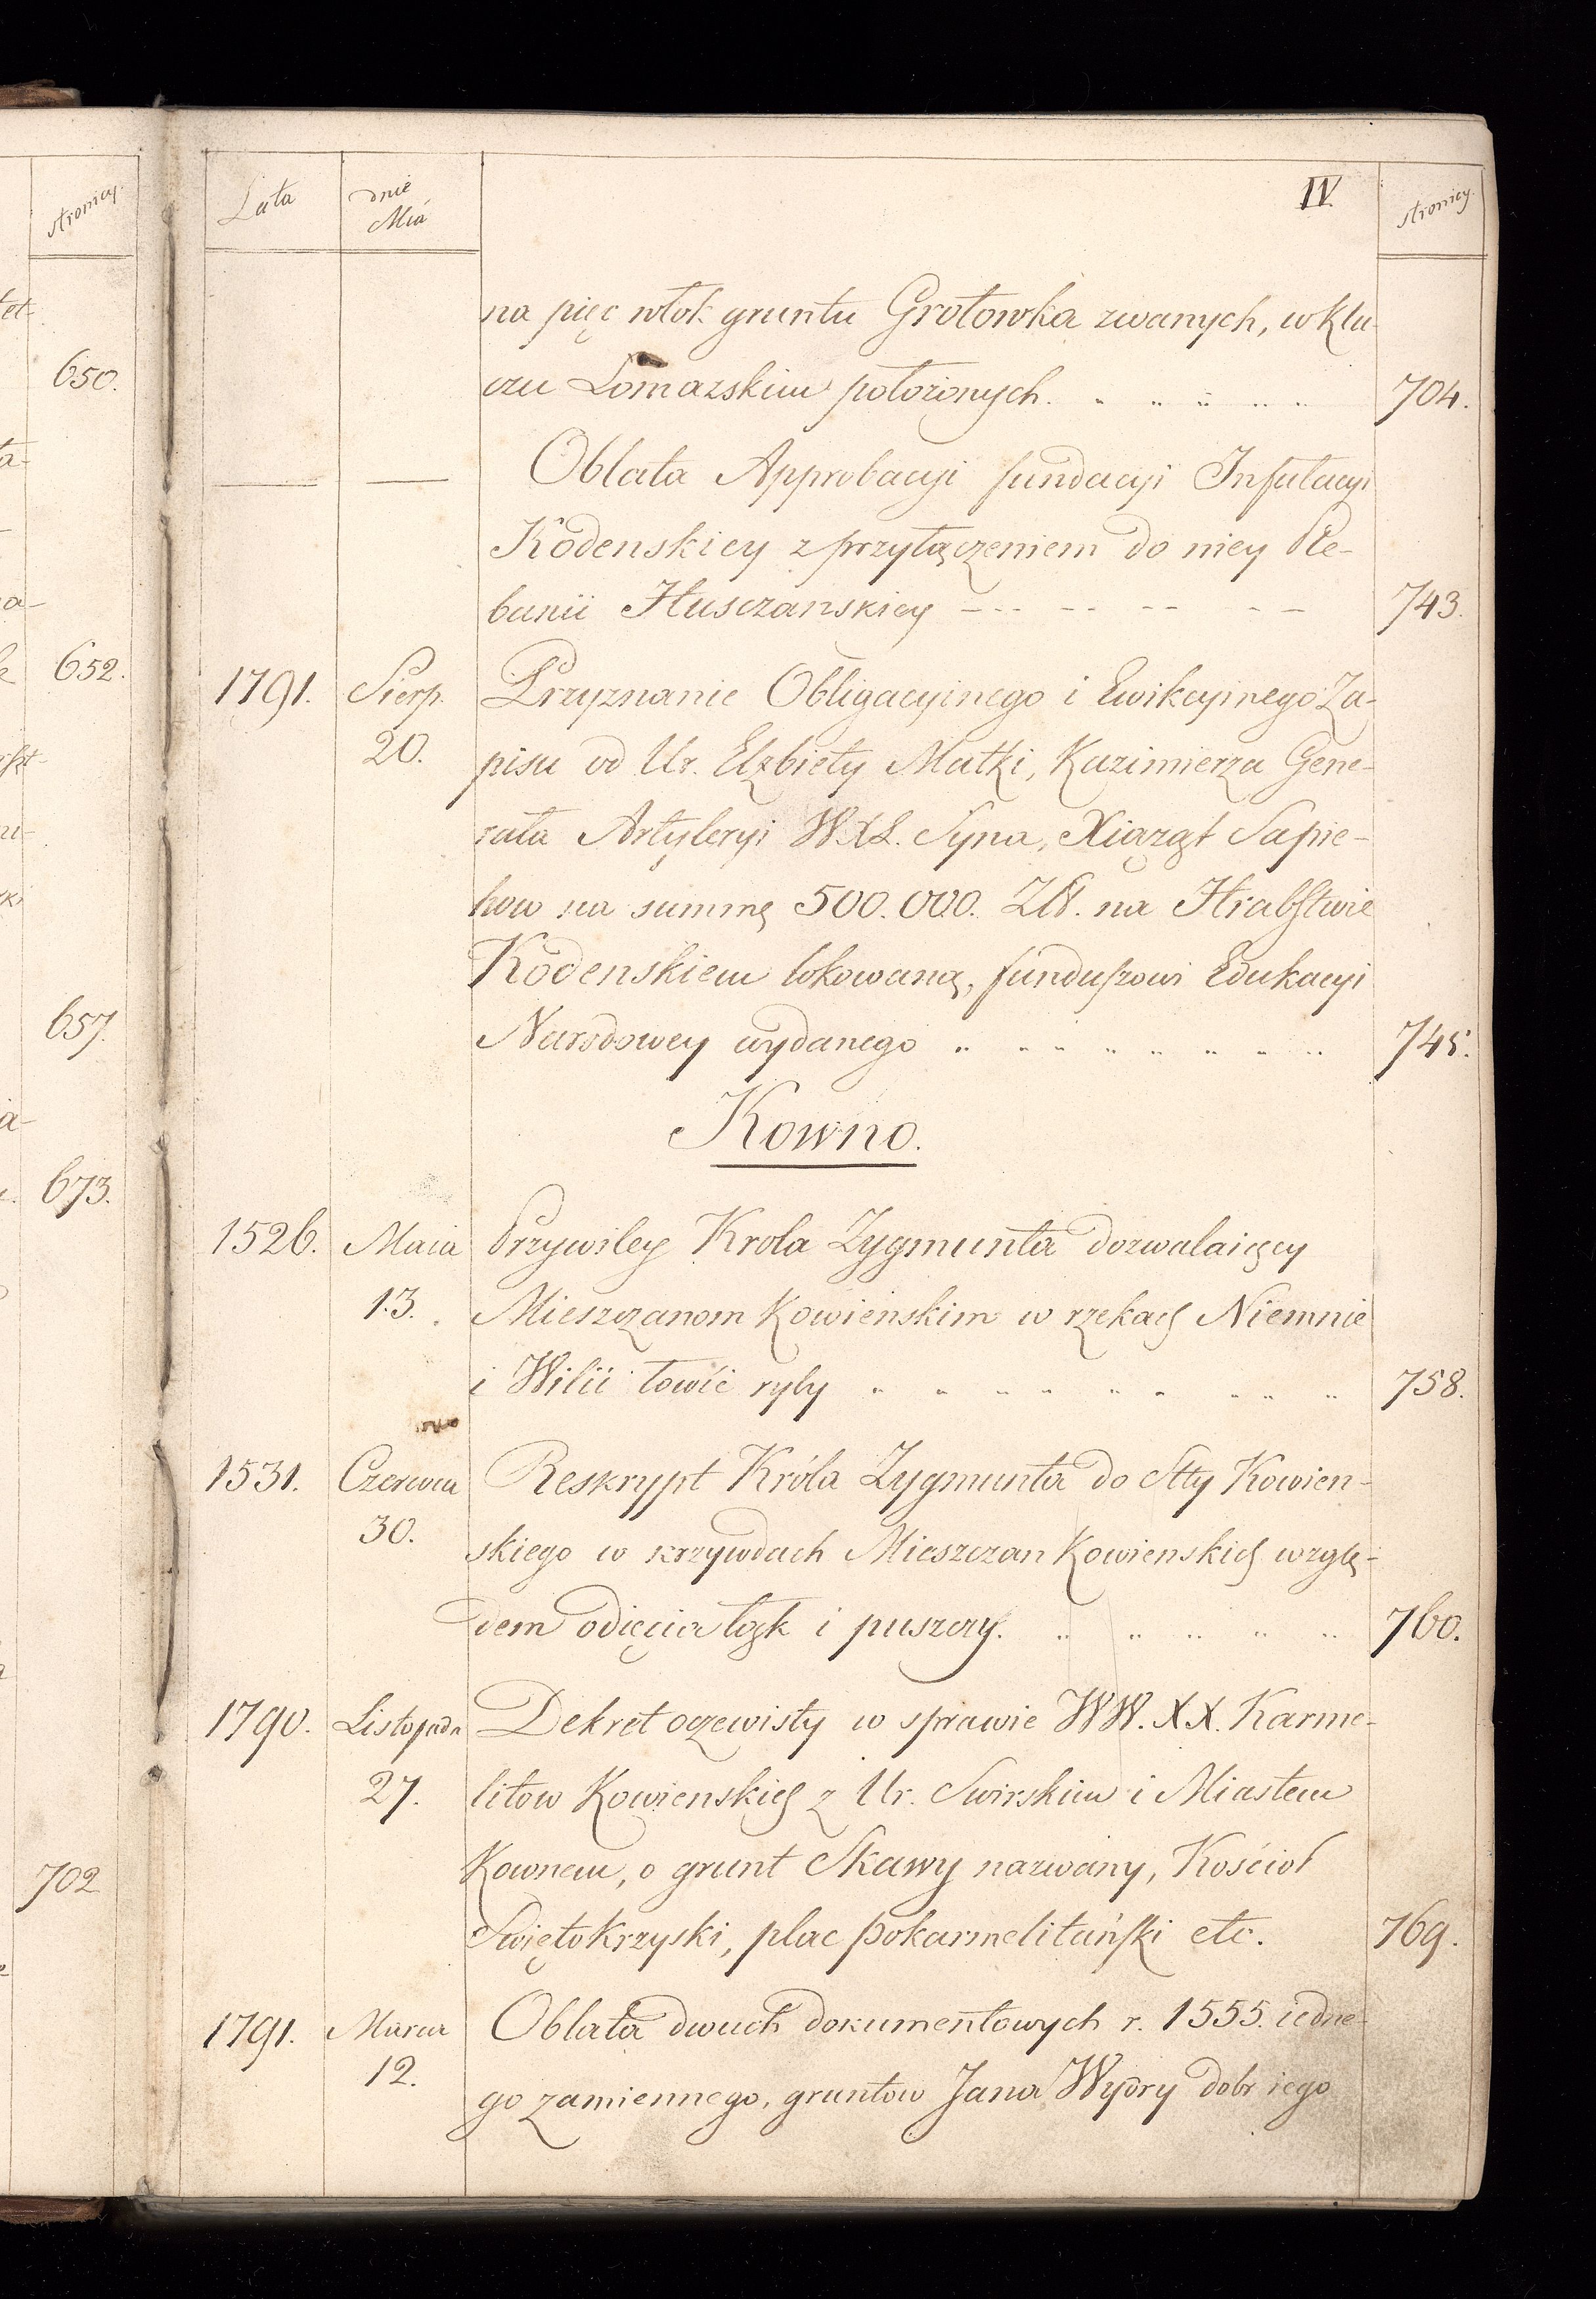 stronicy.
et-
650.
ła-
a-
652.
657.
a-
673.
702
Lata
dnie
Mia
IV.
stronicy.
na pięc włok gruntu Grotowka zwanych, w Klu-
czu Łomazskim położonych. 704.
Oblata Approbacyi fundacyi Infułacyi
Kodenskiey z przyłączeniem do niey Ple-
banii Husczanskiey 743.
1791. Sierp. Przyznanie Obligacyinego i Ewikcyinego Za-
20. pisu od Ur. Elzbiety Matki, Kazimierza Gene-
rała Artyleryi W.X.L. Syna, Xiążąt Sapie-
how na summę 500.000. Zł. na Hrabstwie
Kodenskiem lokowaną, funduszowi Edukacyi
Narodowey wydanego 745.
Kowno.
1526. Maia Przywiley Krola Zygmunta dozwalaiący
13. Mieszczanom Kowienskim w rzekach Niemnie
i Wilii łowić ryby 758.
1531. Czerwca Reskrypt Króla Zygmunta do Stty Kowien-
30. skiego w krzywdach Mieszczan Kowienskich wzglę-
dem odięcia łąk i puszczy. 760.
1790. Listopada Dekret oczewisty w sprawie WW. XX. Karme-
27. litow Kowienskich z Ur. Swirskim i Miastem
Kownem, o grunt Skawy nazwany, Kościoł
Swiętokrzyski, plac pokarmelitański etc. 769.
1791. Marca Oblata dwuch dokumentowych r. 1555. iedne-
12. go zamiennego, gruntow Jana Wyory dobr iego